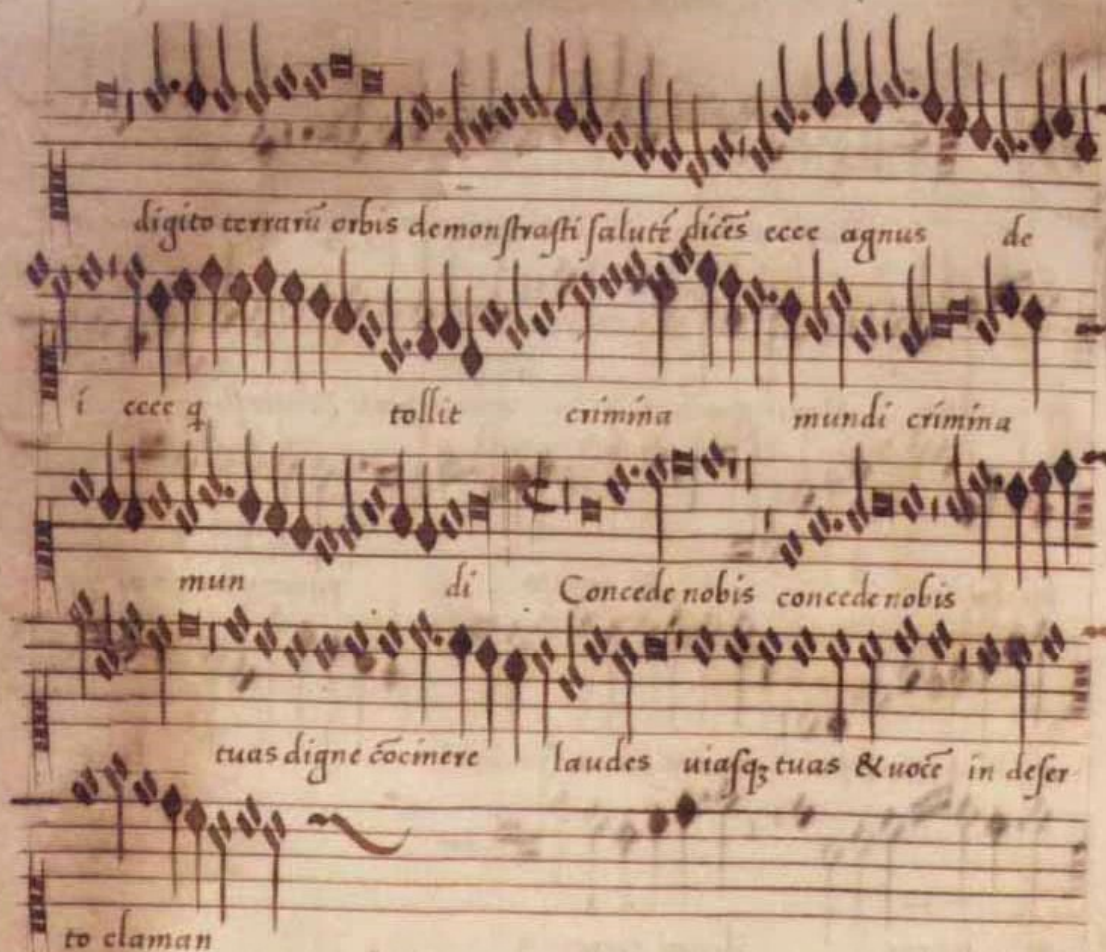 digito terrarū orbis demonſtraſti ſaluté dicēs ecce agnus de
i ecce q tollit crimina mundi crimina
mun di Concede nobis concede nobis
tuas digne cōcinere laudes uiaſqꝫ tuas & uocē in deſer
to claman